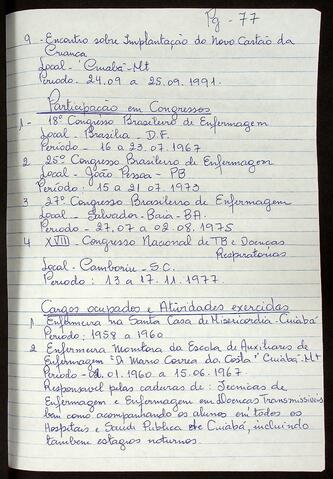 Pg - 77
9 - Encontro sobre Implantação do Novo Cartão da
Criança
Local - Cuiabá - Mt
Período - 24.09 a 25.09.1991.
Participação em Congressos
1 - 18º Congresso Brasileiro de Enfermagem
Local - Brasília - D.F.
Período - 16 a 23.07.1967
2 25º Congresso Brasileiro de Enfermagem
Local - João Pessoa - PB
Período: 15 a 21.07.1973
3 27º Congresso Brasileiro de Enfermagem
Local - Salvador - Baia - BA.
Período - 27.07 a 02.08.1975
4 XVIII - Congresso Nacional de TB e Doenças
Respiratorias
Local - Camboriu - S.C.
Periodo: 13 a 17.11.1977
Cargos ocupados e Atividades exercidas
1 Enfermeira na Santa Casa de Misericordia - Cuiabá
Período: 1958 a 1960
2 Enfermeira Monitora da Escola de Auxiliares de
Enfermagem "Dr Mario Correa da Costa" Cuiabá-Mt
Período - 01.01.1960 a 15.06.1967
Responsavel pelas cadeiras de: Tecnicas de
Enfermagem e Enfermagem em Doenças Transmissiveis
bem como acompanhando os alunos em todos os
Hospitais e Saude Publica de Cuiabá, incluindo
tambem estagios noturnos.